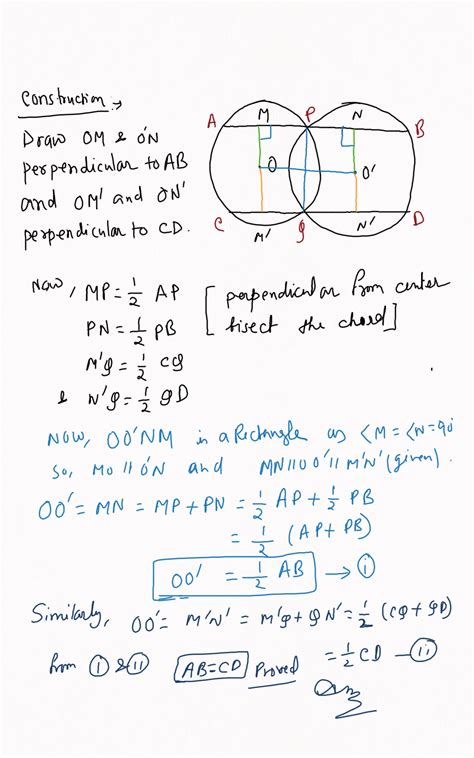 Construction :→
Draw OM & O'N
perpendicular to AB
and OM' and O'N'
perpendicular to CD.
A M P N B
O O'
C M' Q N' D
Now, MP = 1/2 AP [perpendicular from center
PN = 1/2 PB bisect the chord]
M'Q = 1/2 CQ
& N'Q = 1/2 QD
NOW, OO'NM is a Rectangle as <M = <N = 90
so, MO || O'N and MN || OO' || M'N' (given).
OO' = MN = MP + PN = 1/2 AP + 1/2 PB
= 1/2 (AP + PB)
OO' = 1/2 AB → (i)
Similarly, OO' = M'N' = M'Q + QN' = 1/2 (CQ + QD)
= 1/2 CD – (ii)
from (i) & (ii) AB = CD Proved
Ans